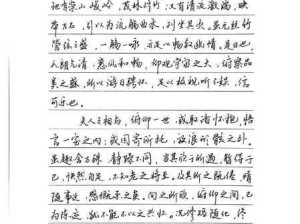 地有崇山峻岭，茂林修竹，又有清流激湍，映
带左右，引以为流觞曲水，列坐其次。虽无丝竹
管弦之盛，一觞一咏，亦足以畅叙幽情。是日也，
天朗气清，惠风和畅，仰观宇宙之大，俯察品
类之盛，所以游目骋怀，足以极视听之娱，信
可乐也。
夫人之相与，俯仰一世，或取诸怀抱，悟
言一室之内；或因寄所托，放浪形骸之外。
虽趣舍万殊，静躁不同，当其欣于所遇，暂得于
己，快然自足，不知老之将至。及其所之既倦，情
随事迁，感慨系之矣。向之所欣，俯仰之间，已
为陈迹，犹不能不以之兴怀。况修短随化，终